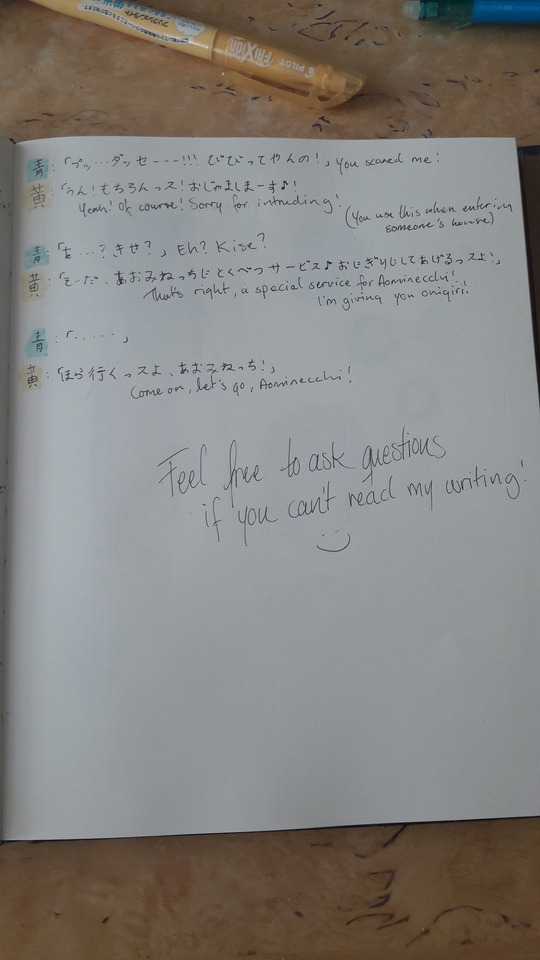 PILOT FRIXION
フリクションライト
青:「プッ…ダッセーーー!!! びびってやんの!」 You scared me!
黄:「うん!もちろんっス!おじゃましまーす♪!
Yeah! Of course! Sorry for intruding!
(You use this when entering
someone's house)
青:「あ…?きせ?」 Eh? Kise?
黄:「そーだ、あおみねっちにとくべつサービス♪おにぎりにしてあげるっスよ!」
That's right, a special service for Aominecchi!
I'm giving you onigiri!
青:「・・・・・」
黄:「ほら行くっスよ、あおみねっち!」
Come on, let's go, Aominecchi!
Feel free to ask questions
if you can't read my writing!